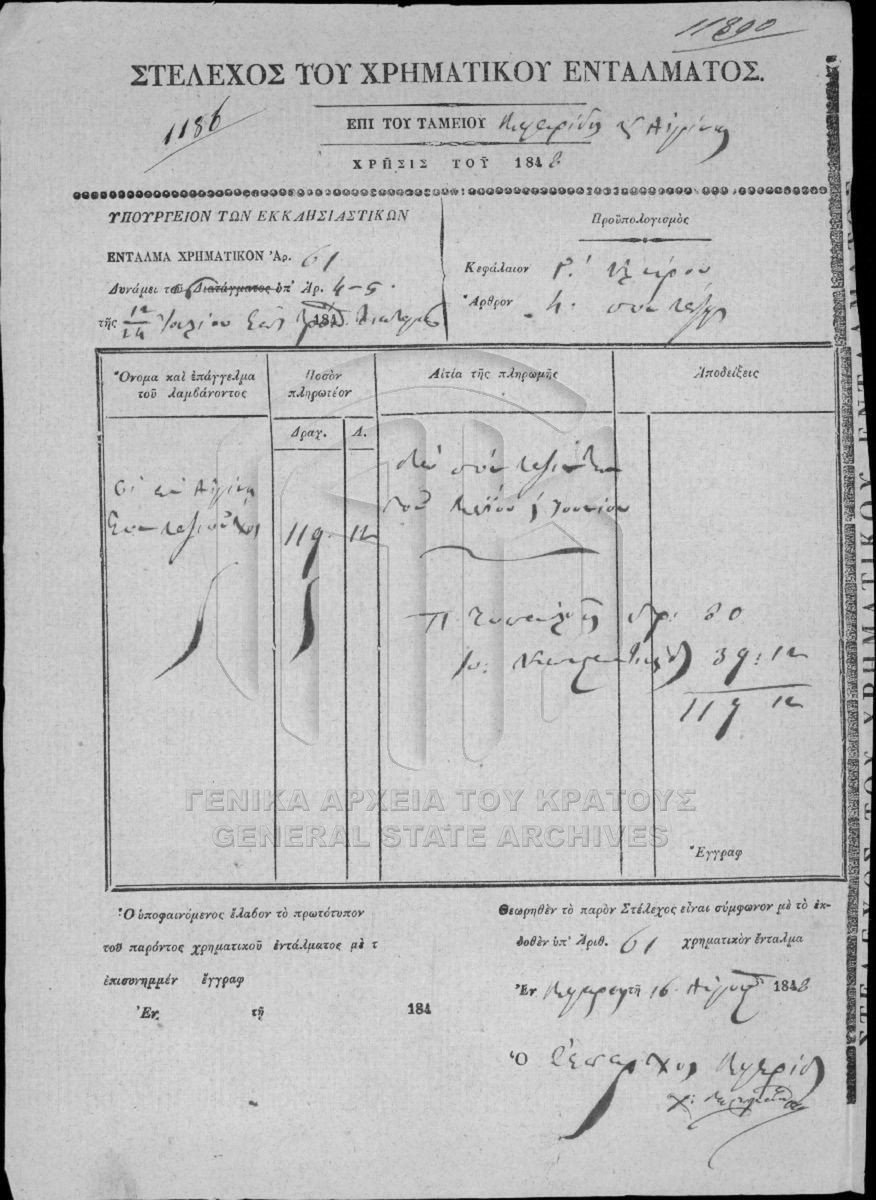 11890
ΣΤΕΛΕΧΟΣ ΤΟΥ ΧΡΗΜΑΤΙΚΟΥ ΕΝΤΑΛΜΑΤΟΣ.
1186
ΕΠΙ ΤΟΥ ΤΑΜΕΙΟΥ Μεγαρίδος
ΧΡΗΣΙΣ ΤΟΥ 1848
ΥΠΟΥΡΓΕΙΟΝ ΤΩΝ ΕΚΚΛΗΣΙΑΣΤΙΚΩΝ
ΕΝΤΑΛΜΑ ΧΡΗΜΑΤΙΚΟΝ Ἀρ. 61
Δυνάμει το Διατάγματος ὑπ' Ἀρ. 4-5.
τῆς 12/24 Ἰουλίου 184
Προϋπολογισμὸς
Κεφάλαιον Γ.' Κλήρου
Ἄρθρον 4.
Ὄνομα καὶ ἐπάγγελμα
τοῦ λαμβάνοντος
Ποσὸν
πληρωτέον
Αἰτία τῆς πληρωμῆς
Ἀποδείξεις
Δραχ. Λ.
Οἱ ἐν Αἰγίνῃ
Συνταξιοῦχοι 119. 12
τοῦ Μαΐου Ἰουνίου
δρ: 80
39: 12
119 12
Ἐγγραφ
ΓΕΝΙΚΑ ΑΡΧΕΙΑ ΤΟΥ ΚΡΑΤΟΥΣ
GENERAL STATE ARCHIVES
Ὁ ὑποφαινόμενος ἔλαβον τὸ πρωτότυπον
τοῦ παρόντος χρηματικοῦ ἐντάλματος μὲ τ
ἐπισυνημμέν ἔγγραφ
Ἐν τῇ 184
Θεωρηθὲν τὸ παρὸν Στέλεχος εἶναι σύμφωνον μὲ τὸ ἐκ-
δοθὲν ὑπ' Ἀριθ. 61 χρηματικὸν ἔνταλμα
Ἐν τῇ 16 Αὐγούστου 1848
Ὁ Ἔπαρχος Μεγαρίδος
ΣΤΕΛΕΧΟΣ ΤΟΥ ΧΡΗΜΑΤΙΚΟΥ ΕΝΤΑΛΜΑΤΟΣ